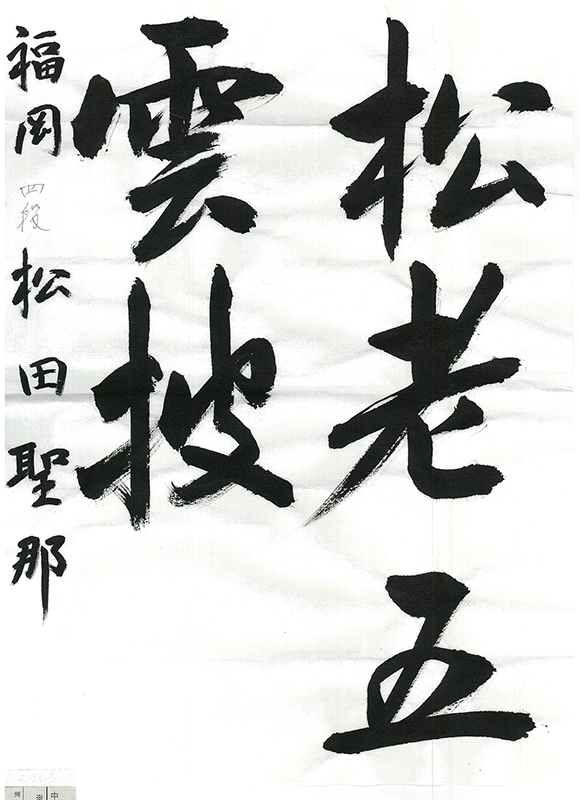 松老五
雲披
福岡 四段 松田聖那